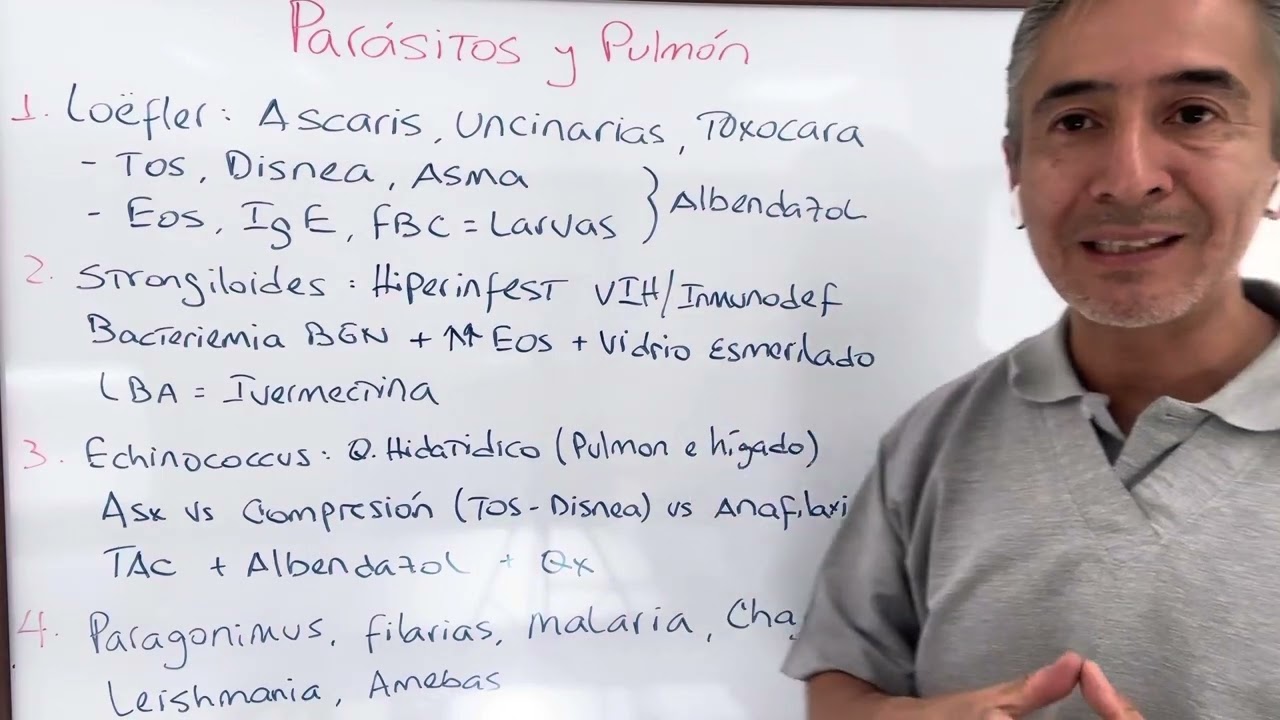 Parásitos y Pulmón
1. Loëfler: Ascaris, Uncinarias, Toxocara
- Tos, Disnea, Asma
- Eos, IgE, FBC = Larvas } Albendazol
2. Strongiloides: Hiperinfest VIH/Inmunodef
Bacteriemia BGN + ↑↑ Eos + Vidrio Esmerilado
LBA = Ivermectina
3. Echinococcus: Q. Hidatidico (Pulmon e hígado)
Asx vs Compresión (Tos - Disnea) vs Anafilaxi
TAC + Albendazol + Qx
4. Paragonimus, filarias, malaria, Cha
Leishmania, Amebas